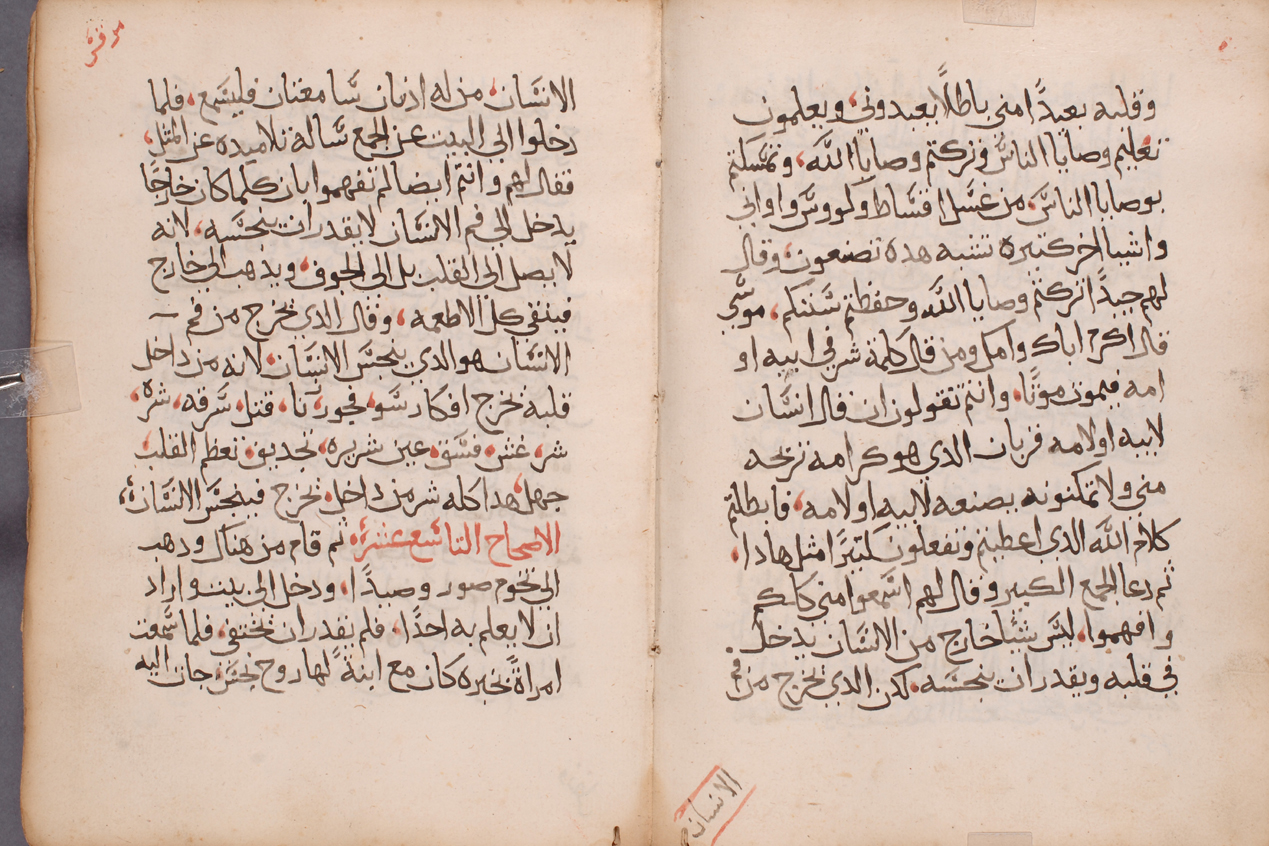 وقلبه بعيدًا مني باطلًا يعبدوني، ويعلمون
تعليم وصايا الناس وتركتم وصايا الله، وتمسكتم
بوصايا الناس، من غسل اقساط وكووس واواني
واشيا اخر كتيره تشبه هده تصنعون، وقال
لهم جيدًا تركتم وصايا الله وحفظتم سننكم، موسي
قال اكرم اباك وامك ومن قال كلمة شر في ابيه او
امه فيموت موتًا، وانتم تقولون ان قال انسان
لابيه او لامه قربان الدي هو كرامه تربحه
مني ولا تمكنونه يصنعه لابيه او لامه، فابطلتم
كلام الله الدي اعطيتم وتفعلون كتيرًا متل هادا،
تم دعا الجمع الكبير وقال لهم اسمعوا مني كلكم
وافهموا، ليس شيًا خارج من الانسان يدخل
في قلبه ويقدر ان ينجسه، لكن الدي تخرج من فم
الانسان
مرقس
الانسان، من له ادنان سامعتان فليسمع، فلما
دخلوا الي البيت عن الجمع ساله تلاميده عن المثل،
فقال لهم وانتم ايضا لم تفهموا بان كلما كان خارجًا
يدخل الي فم الانسان لا يقدر ان ينجسه، لانه
لا يصل الي القلب بل الي الجوف، ويدهب الي خارج
فينقي كل الاطعمه، وقال الدي تخرج من فم
الانسان هو الدي ينجس الانسان، لانه من داخل
قلبه تخرج افكار سو، فجور، زنا، قتل، سرقه، شره،
شر، غش، فسق، عين شريره، تجديف، تعظم القلب،
جهل، هدا كله شر من داخل، تخرج فينجس الانسان،
الاصحاح التاسع عشر، تم قام من هناك ودهب
الي تخوم صور وصيدًا، ودخل الي بيت واراد
ان لا يعلم به احدًا، فلم يقدر ان تختفي، فلما سمعت
امراةً بخبره كان مع ابنةً لها روح نجس، جات اليه